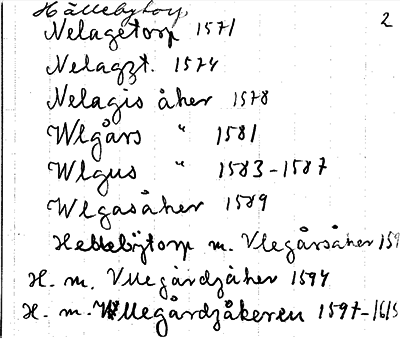 Hällebytorp
2
Nelagetorp 1571
Nelagzt. 1574
Nelagis åker 1578
Wlgårs " 1581
Wlgus " 1583-1587
Wlgasåker 1589
Hellebÿtorp m. Vlegårsåker 159
H. m. Vllegårdzåker 1594
H. m. Wllegårdzåkeren 1597-1615